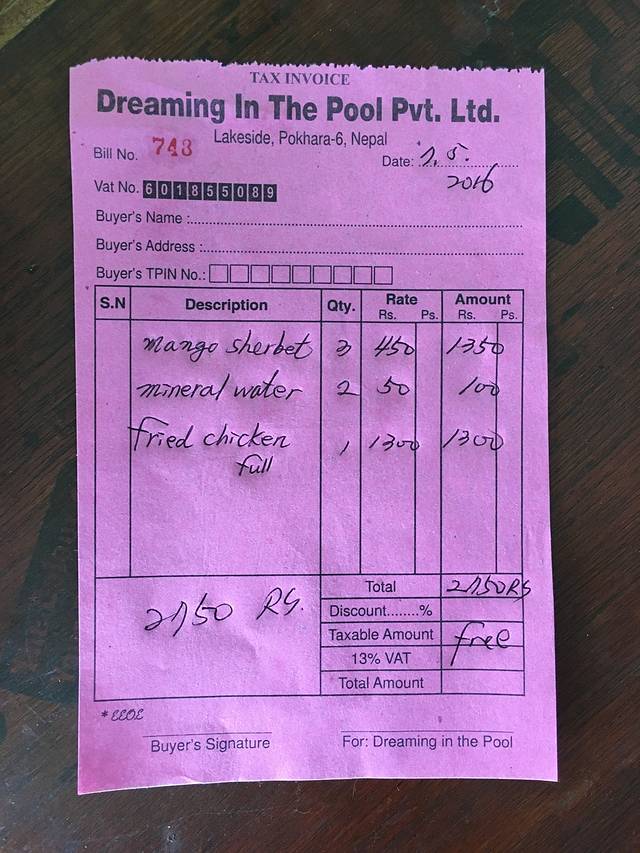 TAX INVOICE
Dreaming In The Pool Pvt. Ltd.
Lakeside, Pokhara-6, Nepal
Bill No. 743
Date: 1.5.
2016
Vat No. 601855089
Buyer's Name :
Buyer's Address :
Buyer's TPIN No.:
S.N Description Qty. Rate Amount
Rs. Ps. Rs. Ps.
mango sherbet 3 450 1350
mineral water 2 50 100
fried chicken 1 1300 1300
full
Total 2750RS
2750 RS.
Discount........%
Taxable Amount free
13% VAT
Total Amount
*EEOE
Buyer's Signature For: Dreaming in the Pool